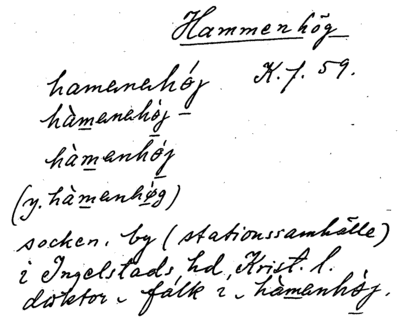 Hammenhög
hamanahój K. f. 59.
hàmanahòj –
hàmanhój
(y. hàmanhøg)
socken. by (stationssamhälle)
i Ingelstads hd, Krist. l.
doktorn fálk i hàmanhòj.